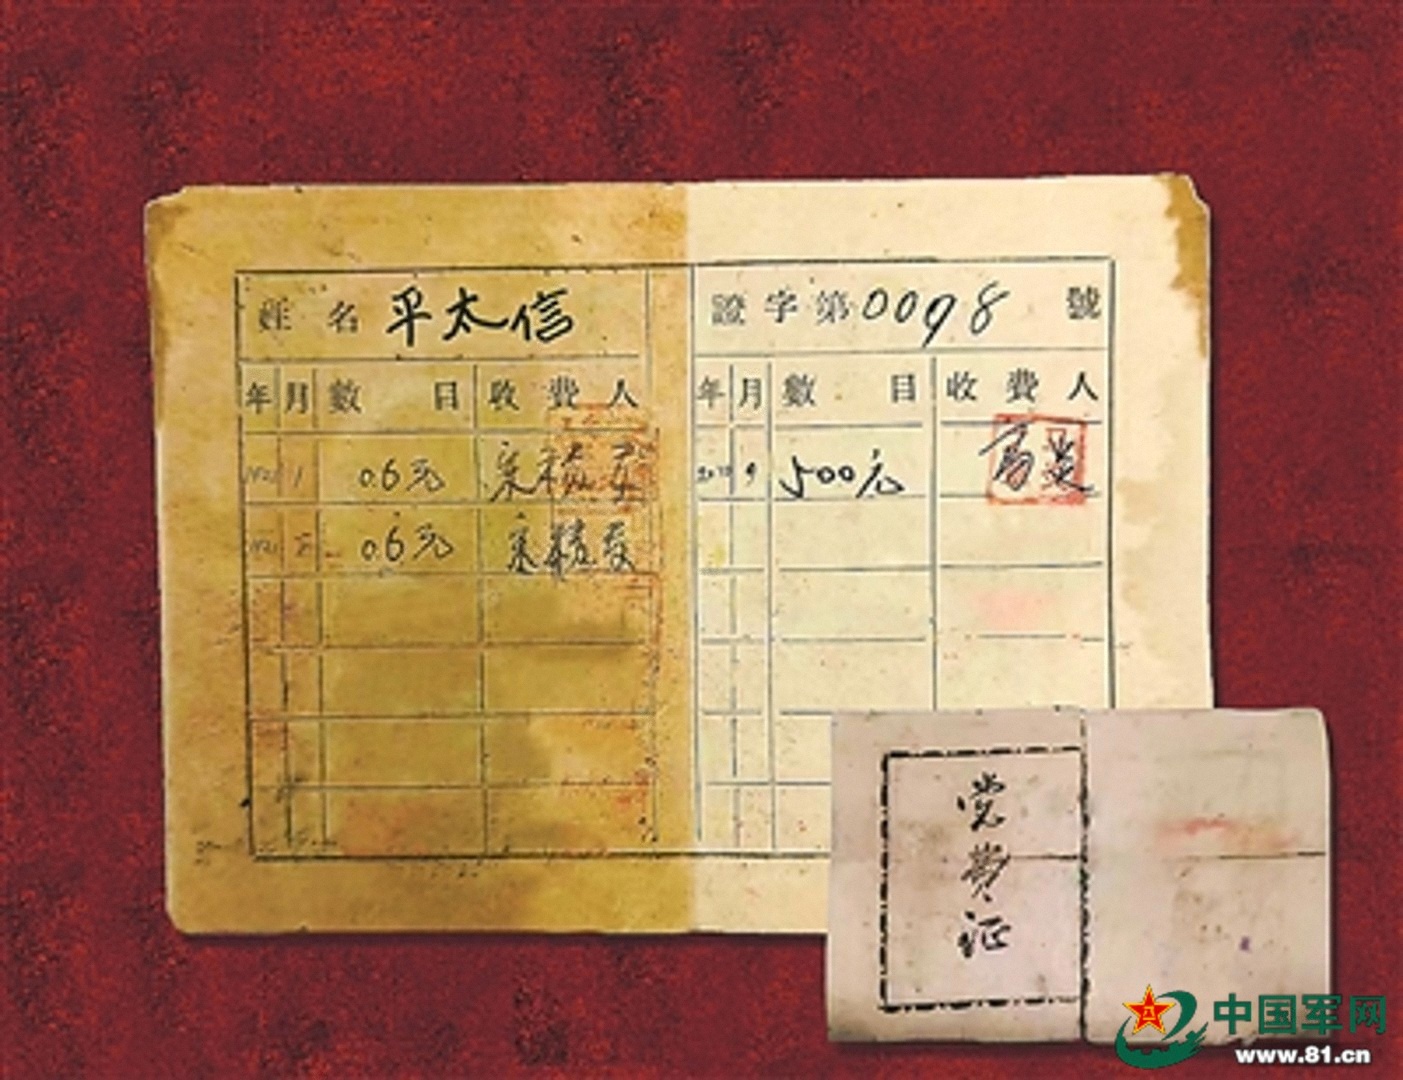 姓名 平太信
年 月 數目 收費人
1 0.6元
0.6元
證字第0098號
年 月 數目 收費人
9 500元
党费证
中国军网
www.81.cn